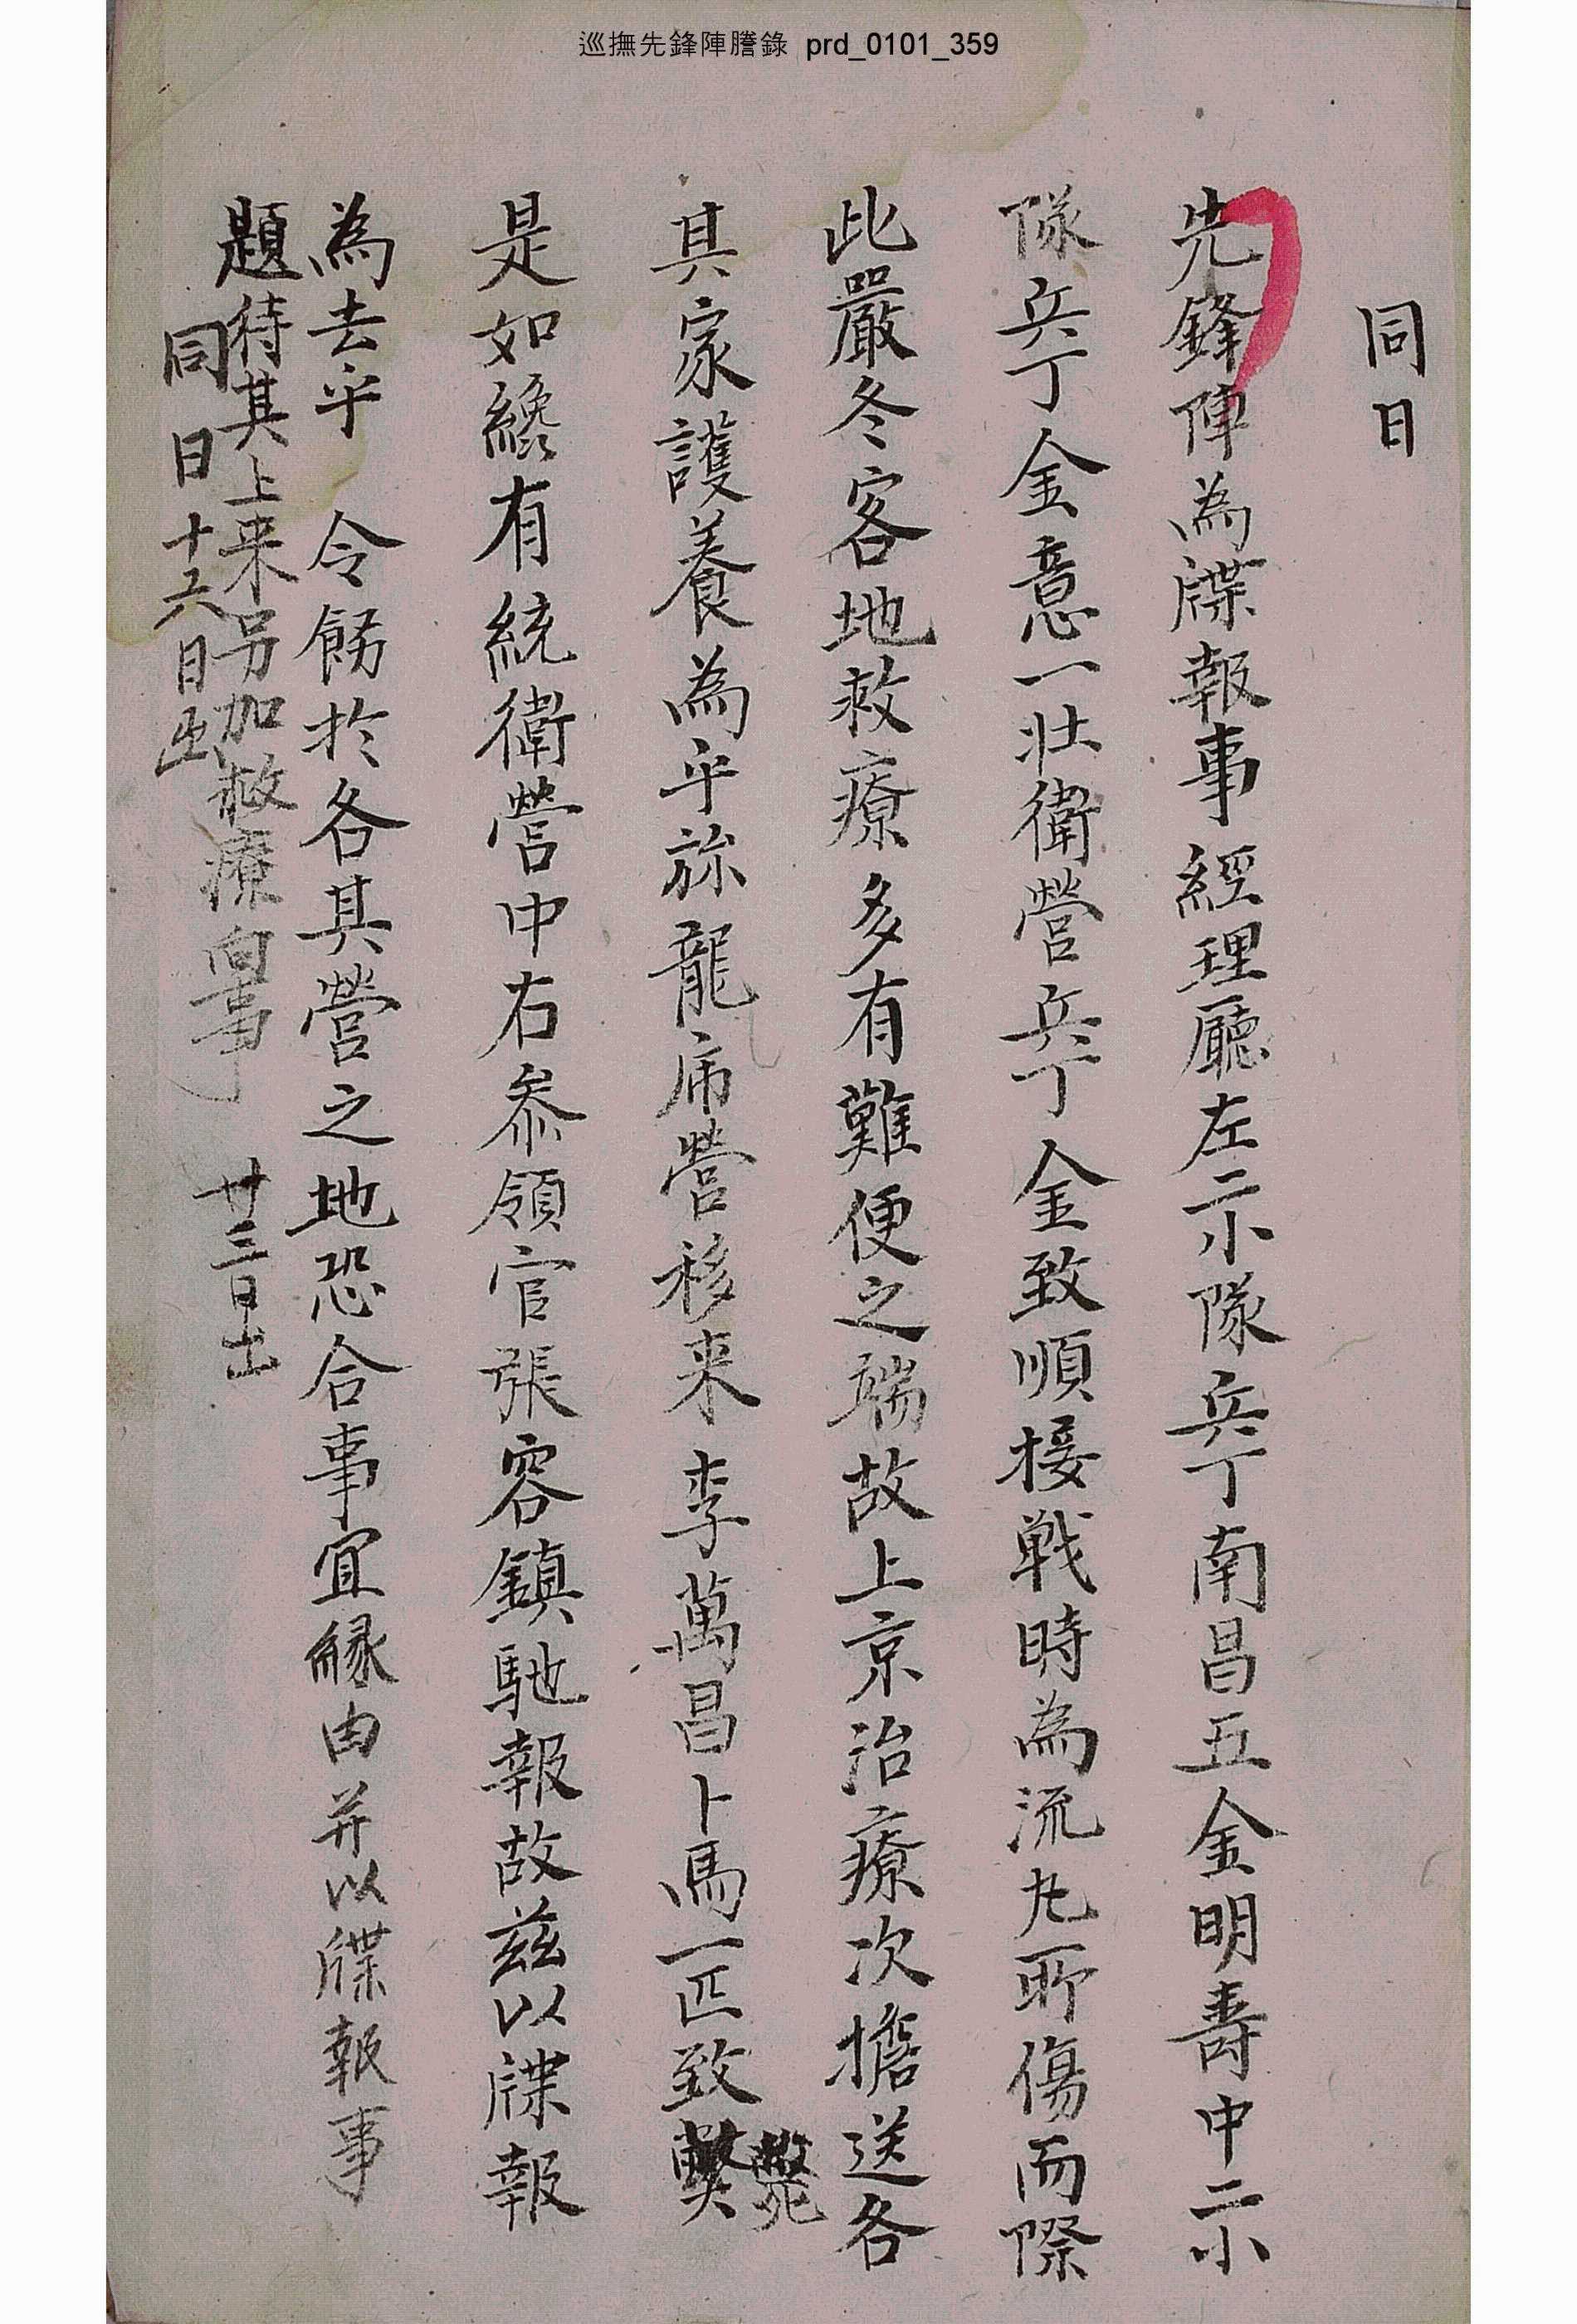 巡撫先鋒陣謄錄 prd_0101_359
同日
先鋒陣為牒報事經理廳左二小隊兵丁南昌五金明壽中二小
隊兵丁金意一壯衛營兵丁金致順接戰時為流丸所傷而際
此嚴冬客地救療多有難便之端故上京治療次擔送各
其家護養為乎旀龍席營移来李萬昌卜馬一匹致斃
斃
是如纔有統衛營中右參領官張容鎮馳報故茲以牒報
為去乎 令飭於各其營之地恐合事宜緣由并以牒報事
題待其上来另加救療向事 廿三日出
同日十六日出